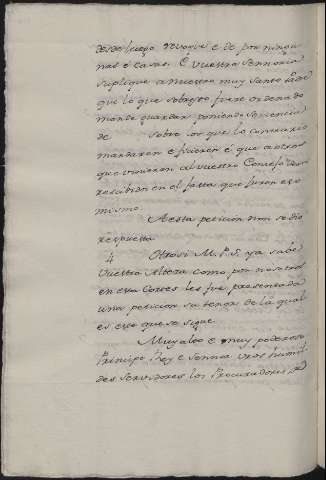 desde luego revoque e dé por ningu
nas é casas. E Vuestra Sennoria
suplique a nuestro muy Santo Padre
que lo que sobresto fuere ordenado
mande guardar poniendo sentencia
de sobre los que lo contrario
mandaren e ficieren é que a otros
que tovieren al vuestro Consejo
resciban en el fasta que juren eso
mismo.
A esta peticion non se dió
respuesta
4 Otrosi M. P. S. ya sabe
Vuestra Alteza como por nosotros
en esas Cortes les fue presentada
una peticion su tenor de la qual
es este que se sigue.
Muy alto e muy poderoso
Principe Rey e Sennor vros humil
des servidores los Procuradores